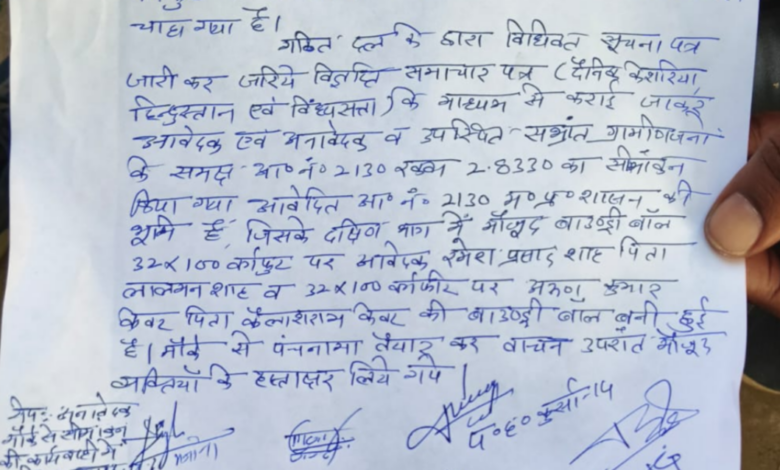 चाहा गया है।
गठित दल के द्वारा विधिवत सूचना पत्र
जारी कर जरिये विज्ञप्ति समाचार पत्र (दैनिक केशरिया
हिन्दुस्तान एवं विंध्यसत्ता) के माध्यम से कराई जाकर
आवेदक एवं अनावेदक व उपस्थित संभ्रांत ग्रामीणजनों
के समक्ष आ० नं० 2130 रकबा 2.8330 का सीमांकन
किया गया आवेदित आ० नं० 2130 म० प्र० शासन की
भूमि है, जिसके दक्षिण भाग में मौजूद बाउण्ड्री वॉल
32x100 वर्गफुट पर आवेदक रमेश प्रसाद शाह पिता
लालमन शाह व 32x100 वर्गफीट पर अरुण कुमार
केवट पिता कैलाशराम केवट की बाउण्ड्री वॉल बनी हुई
है। मौके से पंचनामा तैयार कर वाचन उपरांत मौजूद
व्यक्तियों के हस्ताक्षर लिये गये।
अनावेदक
मौके से सीमांकन
की कार्यवाही में
प० ह०